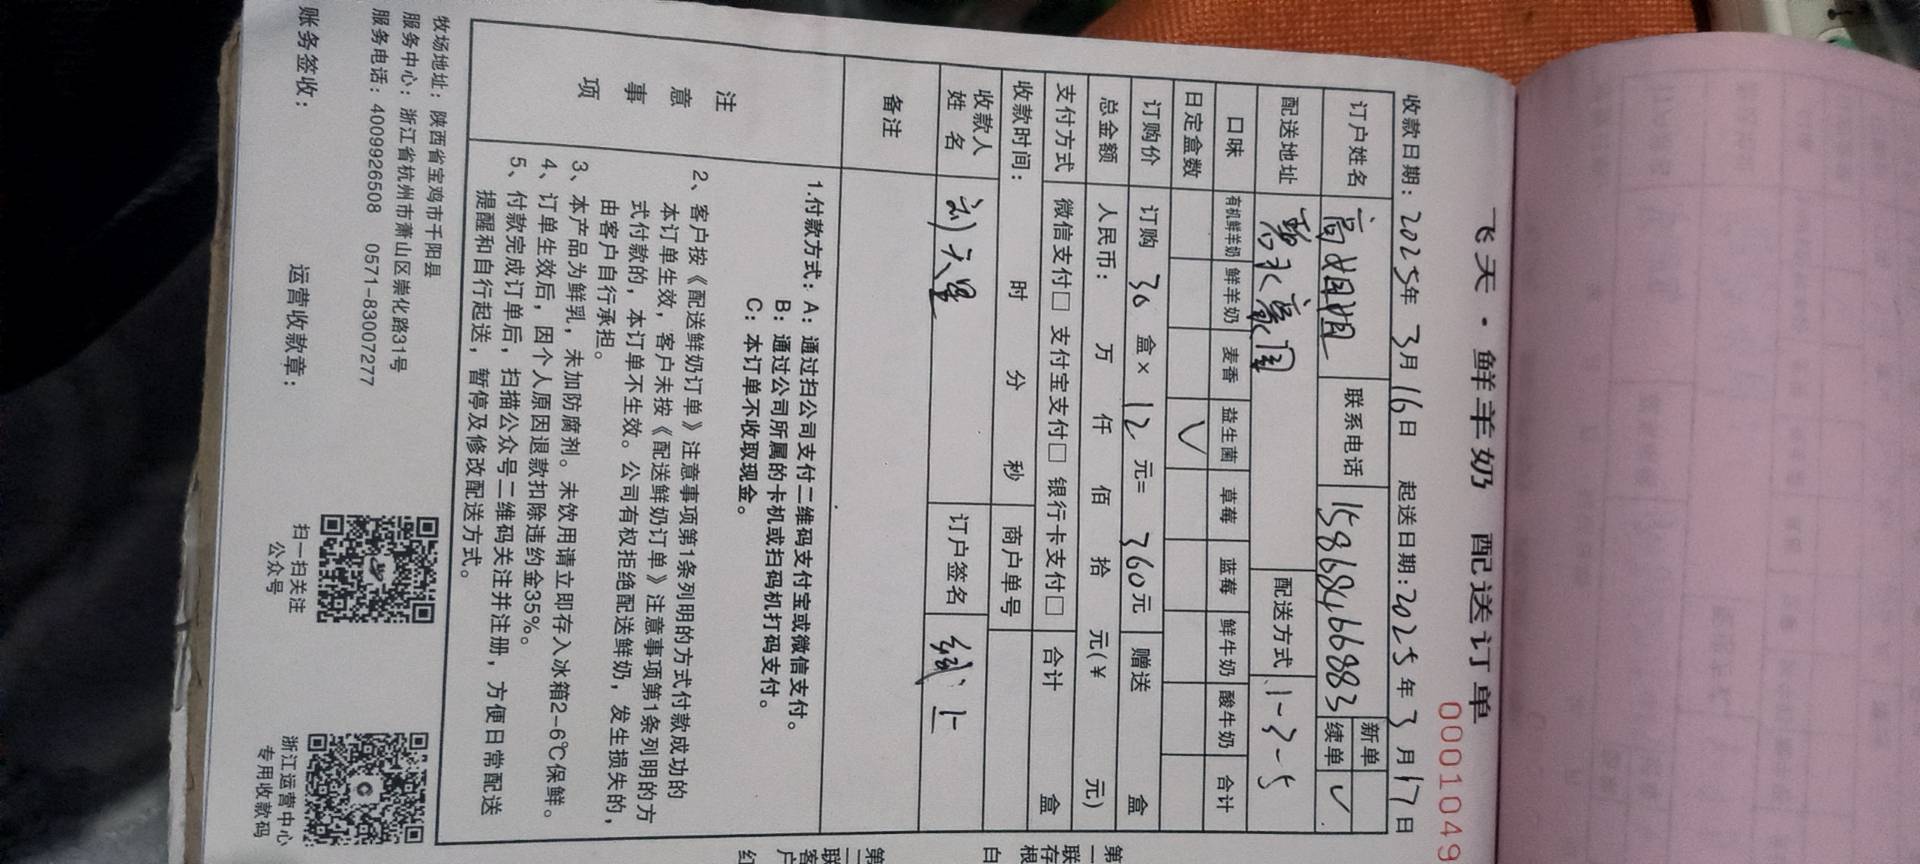 飞天·鲜羊奶 配送订单
00010499
收款日期：2025年3月16日 起送日期:2025年3月17日
订户姓名 高姐姐 联系电话 15868466883 新单
续单 √
配送地址 配送方式 1-3-5
口味 有机鲜羊奶 鲜羊奶 麦香 益生菌 草莓 蓝莓 鲜牛奶 酸牛奶 合计
日定盒数 √
订购价 订购 30 盒× 12 元= 360元 赠送 盒
总金额 人民币： 万 仟 佰 拾 元(￥ 元)
支付方式 微信支付□ 支付宝支付□ 银行卡支付□ 合计 盒
收款时间： 时 分 秒 商户单号
收款人
姓名 刘天星 订户签名 线上
备注
注意事项
1.付款方式：A：通过扫公司支付二维码支付宝或微信支付。
B：通过公司所属的卡机或扫码机打码支付。
C：本订单不收取现金。
2、客户按《配送鲜奶订单》注意事项第1条列明的方式付款成功的
本订单生效，客户未按《配送鲜奶订单》注意事项第1条列明的方
式付款的，本订单不生效。公司有权拒绝配送鲜奶，发生损失的，
由客户自行承担。
3、本产品为鲜乳，未加防腐剂。未饮用请立即存入冰箱2-6℃保鲜。
4、订单生效后，因个人原因退款扣除违约金35%。
5、付款完成订单后，扫描公众号二维码关注并注册，方便日常配送
提醒和自行起送，暂停及修改配送方式。
牧场地址：陕西省宝鸡市千阳县
服务中心：浙江省杭州市萧山区崇化路31号
服务电话：4009926508 0571-83007277
账务签收： 运营收款章：
扫一扫关注
公众号
浙江运营中心
专用收款码
第一联存根白
第二联客户红